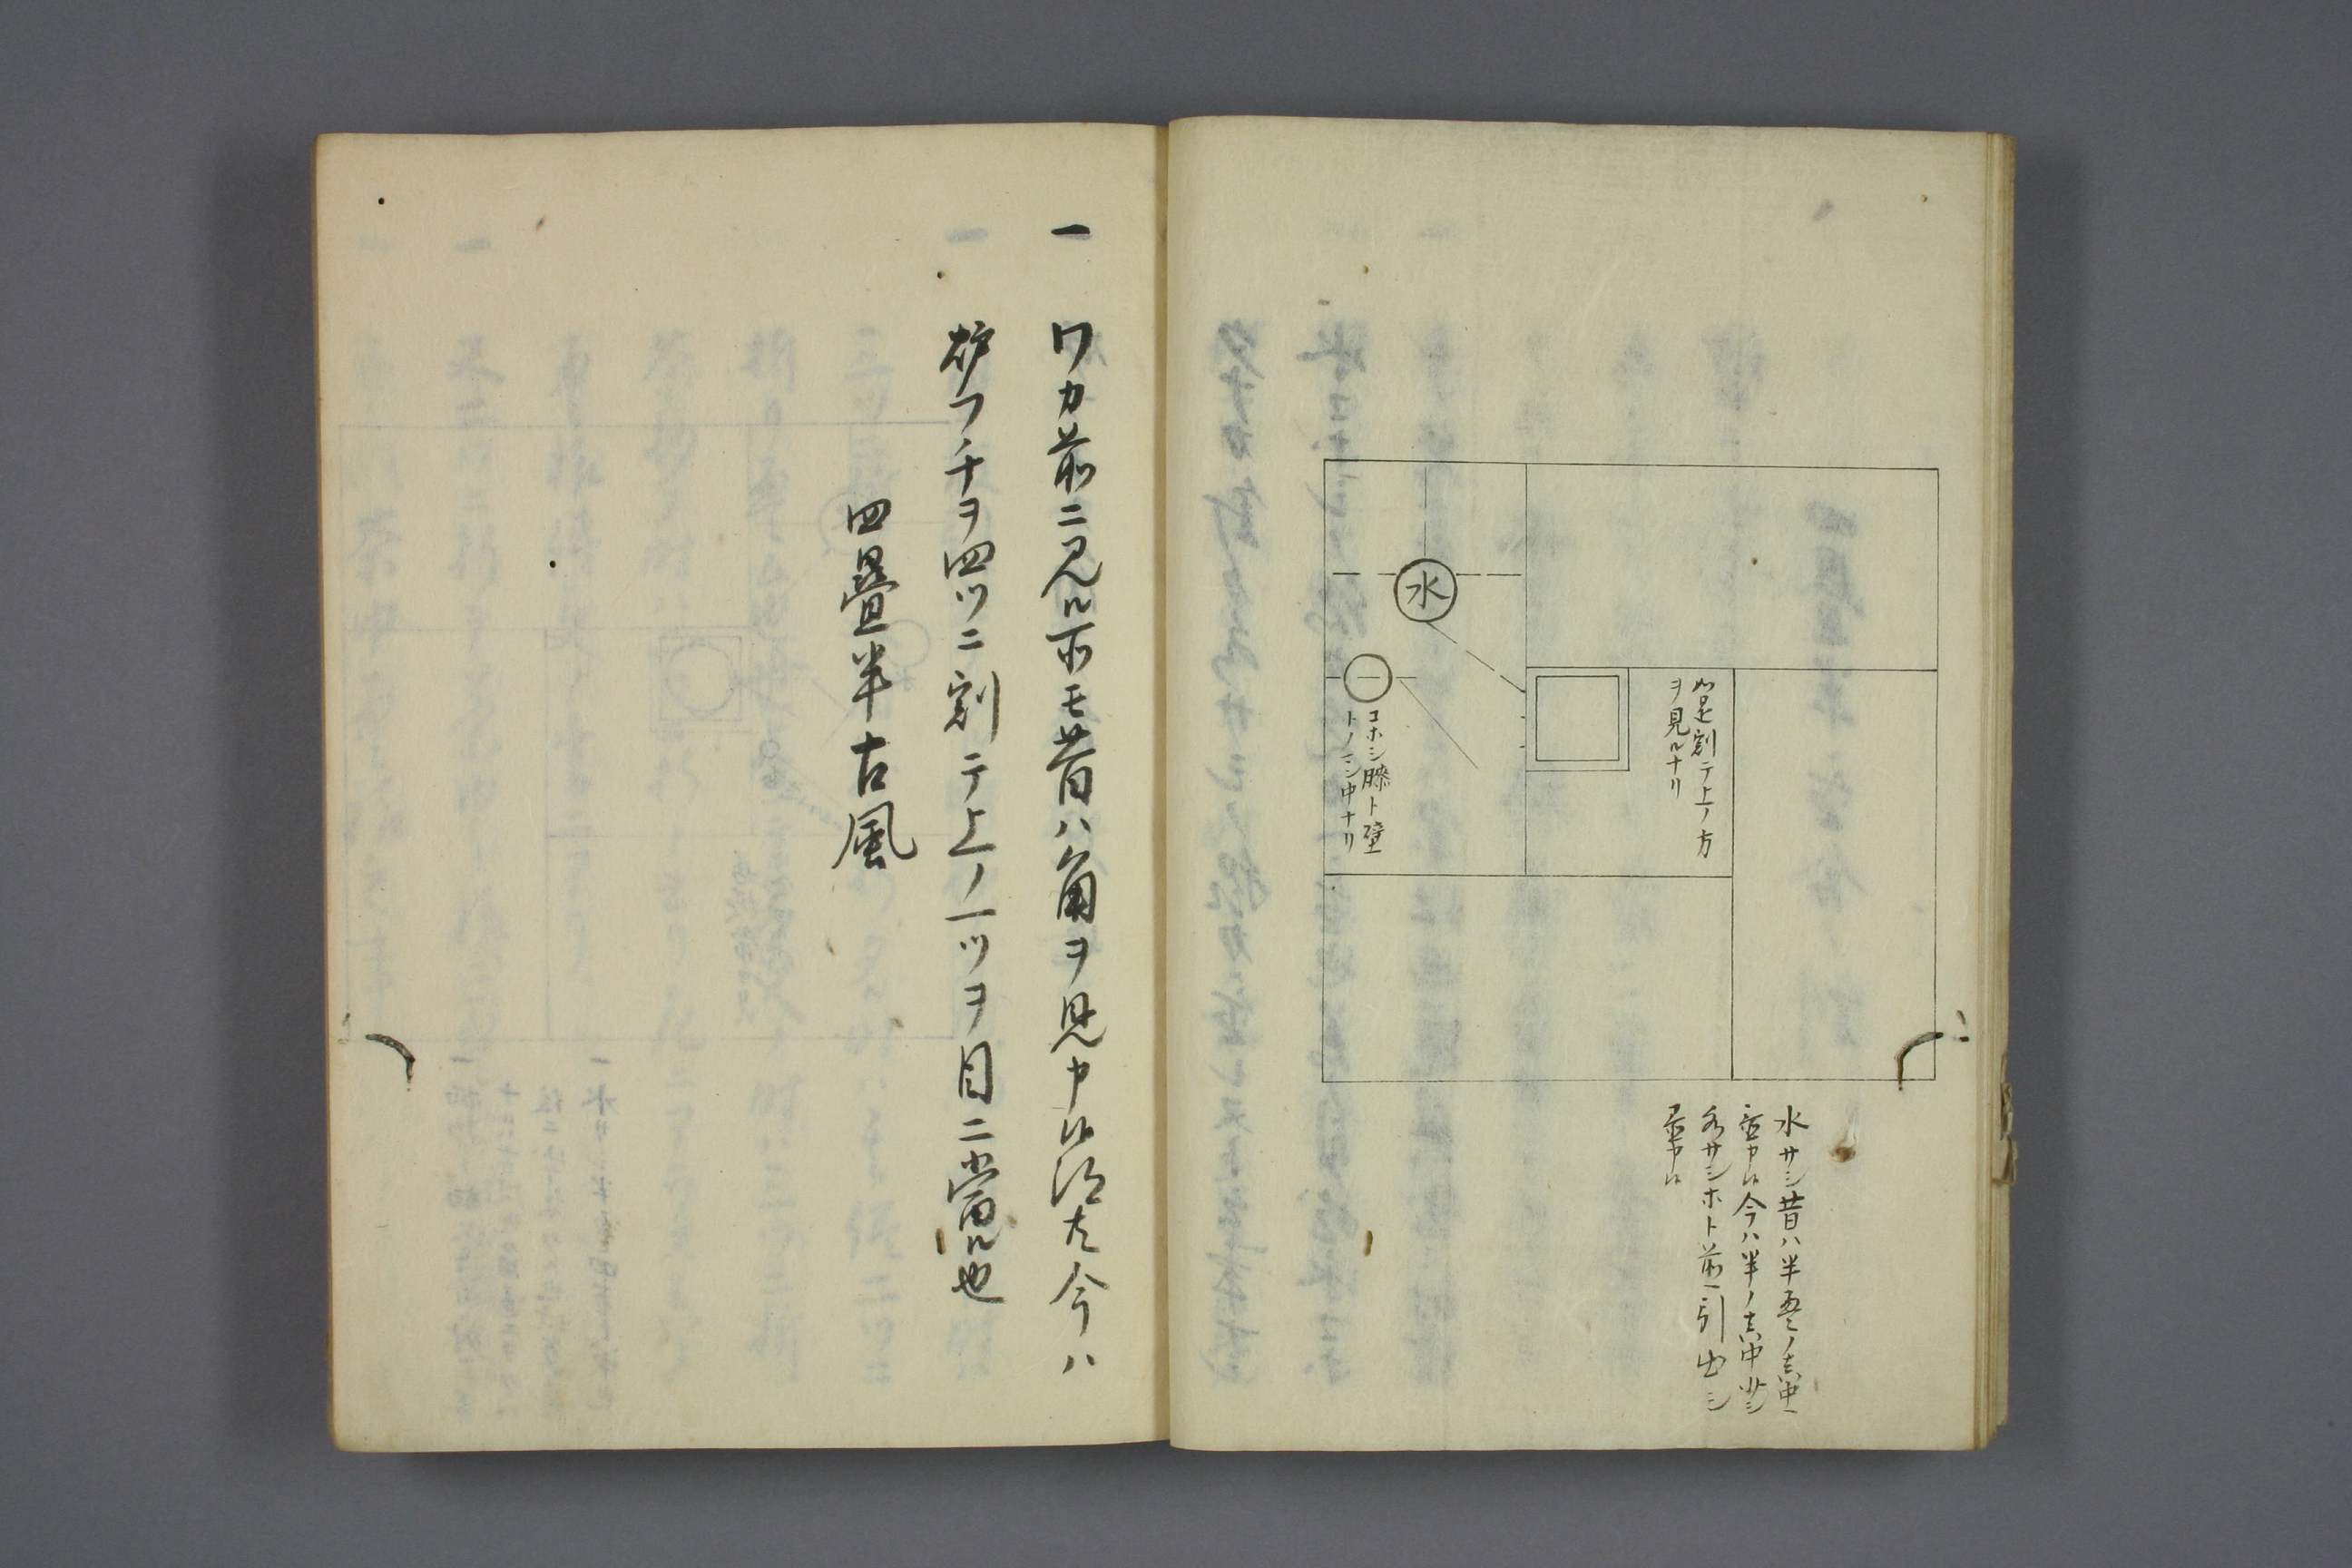 水
如是割テ上ノ方
ヲ見ルナリ
コホシ膝ト壁
トノマン中ナリ
水サシ昔ハ半畳ノ真中ニ
置申候今ハ半ノ真中水サシ
水サシホト前ニ引出シ
置申候
一 ワカ前ニ見ル所モ昔ハ角ヲ見申候得共今ハ
炉フチヲ四ツニ割テ上ノ一ツヲ目ニ當ル也
四疊半古風